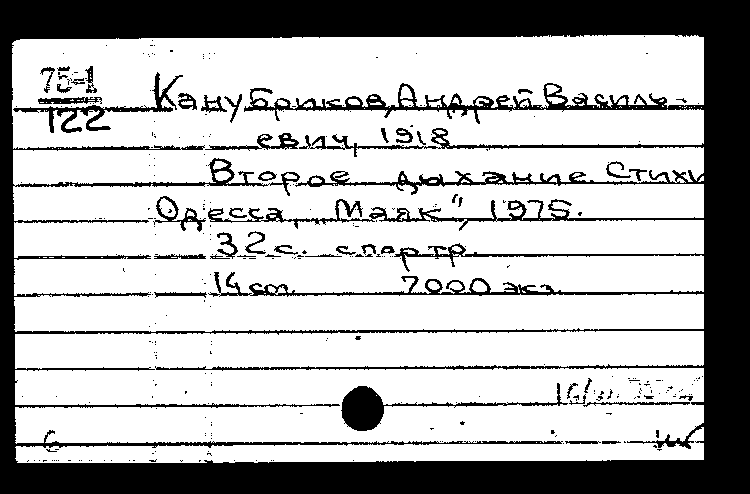 75-1
122
Канубриков, Андрей Василь-
евич, 1918
Второе дыхание. Стихи
Одесса, „Маяк“, 1975.
32 с. с портр.
14 коп. 7000 экз.
16/
6